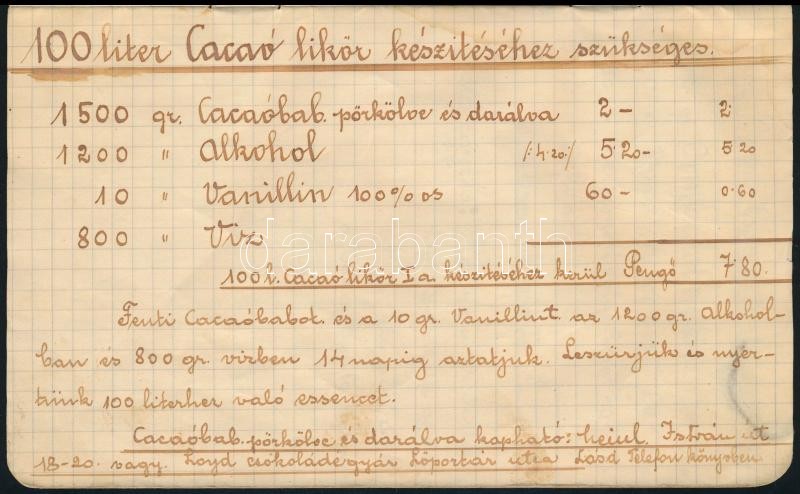 100 liter Cacaó likőr készitéséhez szükséges.
1500 gr. Cacaóbab. pörkölve és darálva 2 – 2.
1200 " Alkohol /:4.20:/ 5.20– 5.20
10 " Vanillin 100%os 60 – 0.60
800 " Viz
darabanth
100 l. Cacaó likőr I a. készitéséhez kerül Pengő 7.80.
Fenti Cacaóbabot. és a 10 gr. Vanillint. az 1200 gr. Alkohol-
ban és 800 gr. vizben 14 napig aztatjuk. Leszürjük és nyer-
tünk 100 literhez való essencet.
Cacaóbab. pörkölve és darálva kapható: István út
18-20. vagy. Loyd csokoládégyár Lőportár utca Lásd Telefon könyvben